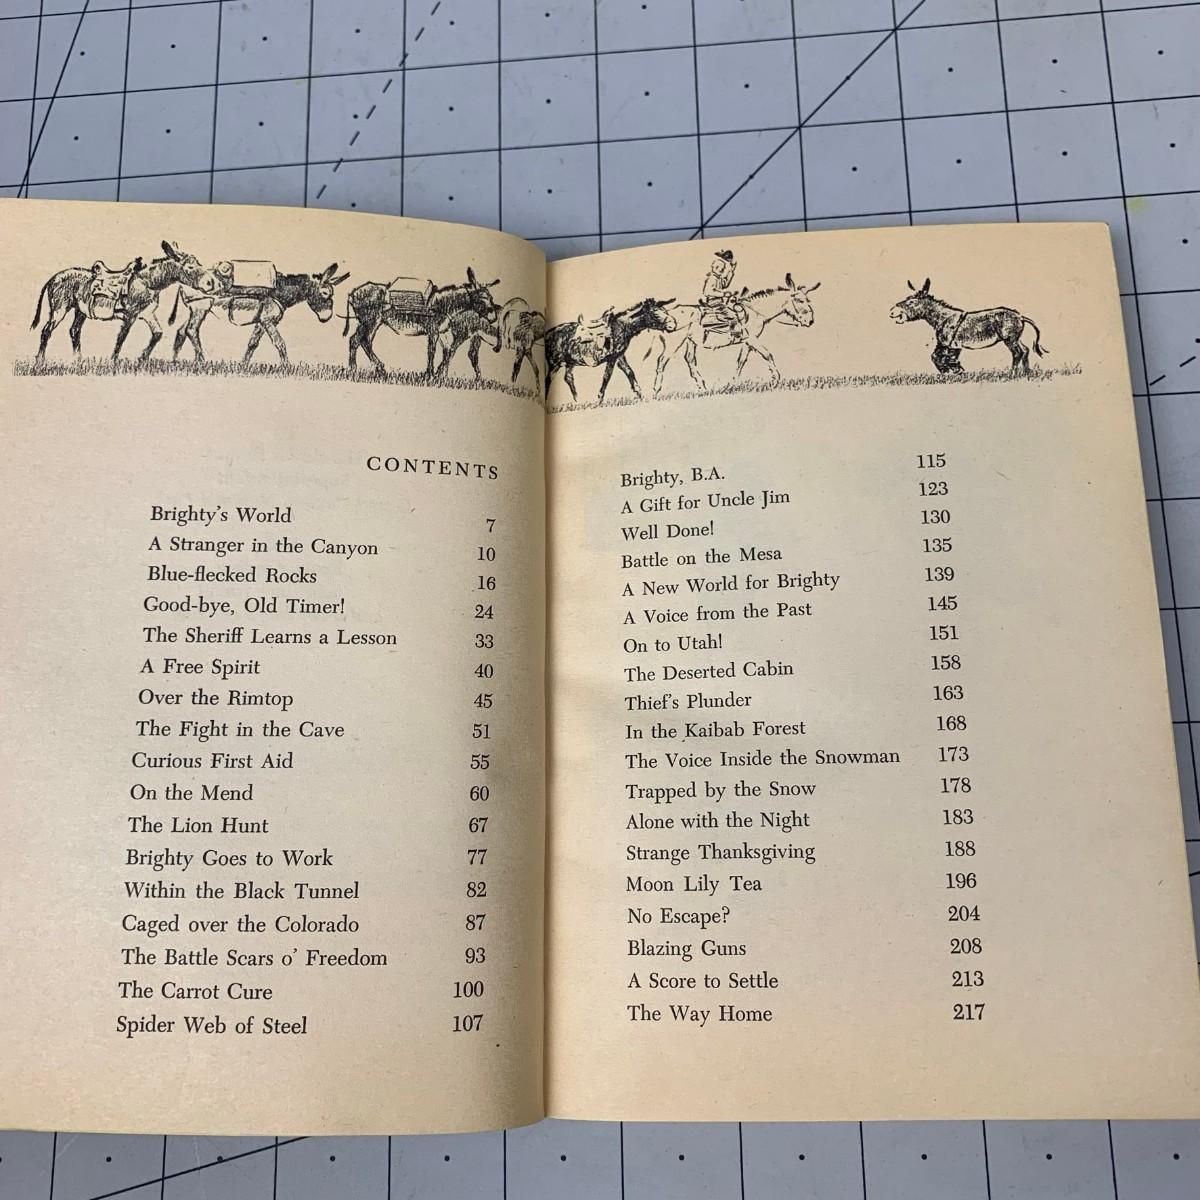 CONTENTS
Brighty's World 7
A Stranger in the Canyon 10
Blue-flecked Rocks 16
Good-bye, Old Timer! 24
The Sheriff Learns a Lesson 33
A Free Spirit 40
Over the Rimtop 45
The Fight in the Cave 51
Curious First Aid 55
On the Mend 60
The Lion Hunt 67
Brighty Goes to Work 77
Within the Black Tunnel 82
Caged over the Colorado 87
The Battle Scars o' Freedom 93
The Carrot Cure 100
Spider Web of Steel 107
Brighty, B.A. 115
A Gift for Uncle Jim 123
Well Done! 130
Battle on the Mesa 135
A New World for Brighty 139
A Voice from the Past 145
On to Utah! 151
The Deserted Cabin 158
Thief's Plunder 163
In the Kaibab Forest 168
The Voice Inside the Snowman 173
Trapped by the Snow 178
Alone with the Night 183
Strange Thanksgiving 188
Moon Lily Tea 196
No Escape? 204
Blazing Guns 208
A Score to Settle 213
The Way Home 217